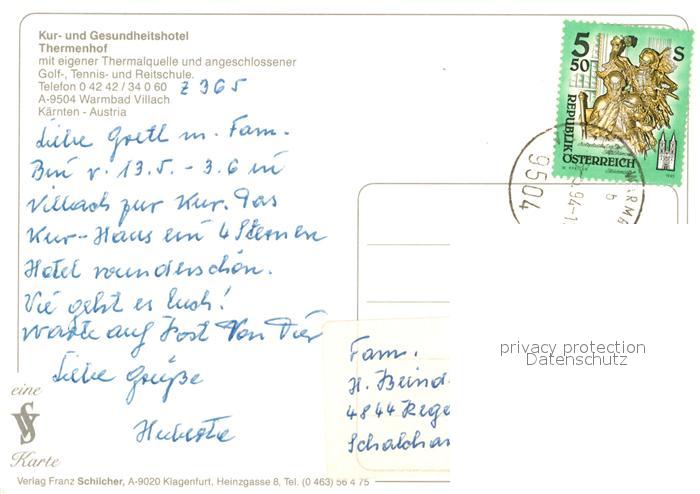 Kur- und Gesundheitshotel
Thermenhof
mit eigener Thermalquelle und angeschlossener
Golf-, Tennis- und Reitschule.
Telefon 0 42 42 / 34 0 60 Z 365
A-9504 Warmbad Villach
Kärnten - Austria
Liebe Gretl m. Fam.
Bin v. 13.5. - 3.6 in
Villach zur Kur. Das
Kur-Haus ein 4 Sternen
Hotel wunderschön.
Wie geht es Euch!
Warte auf Post von Dir
Liebe Grüße
5 50 S
REPUBLIK
ÖSTERREICH
9504
94-1
privacy protection
Datenschutz
Fam.
H. Beind
4844 Rege
Schalchar
eine
Karte
Verlag Franz Schilcher, A-9020 Klagenfurt, Heinzgasse 8, Tel. (0 463) 56 4 75